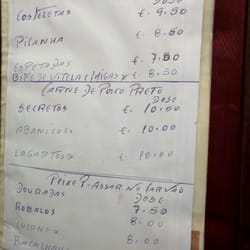 DOSE
COSTELETAS €. 9.50
PICANHA €. 8.50
ESPETADAS €. 7.50
BIFE DE VITELA C/MIGAS x €. 8.50
CARNE DE PORCO PRETO
DOSE
SECRETOS €. 10.00
ABANICOS x €. 10.00
LAGARTOS x €. 10.00
PEIXE P-ASSAR NO CARVÃO
DOURADAS DOSE
ROBALOS 7.50
8.00
BACALHAU 8.00